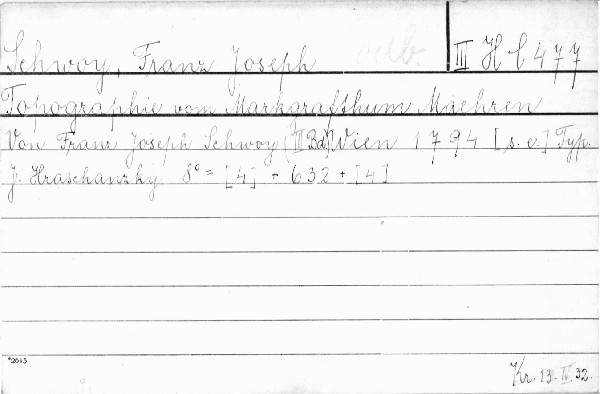 Schwoy, Franz Joseph III H l 477
Topographie vom Markgrafthum Maehren
Von Franz Joseph Schwoy (II Bd) Wien 1794 [s. e.] Typ.
J. Hraschanzky 8° = [4] + 632 + [4]
*2013
Kr. 13. IV. 32.